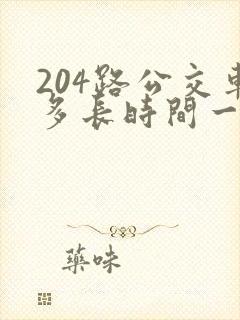 204路公交車
多長時間一
藥味